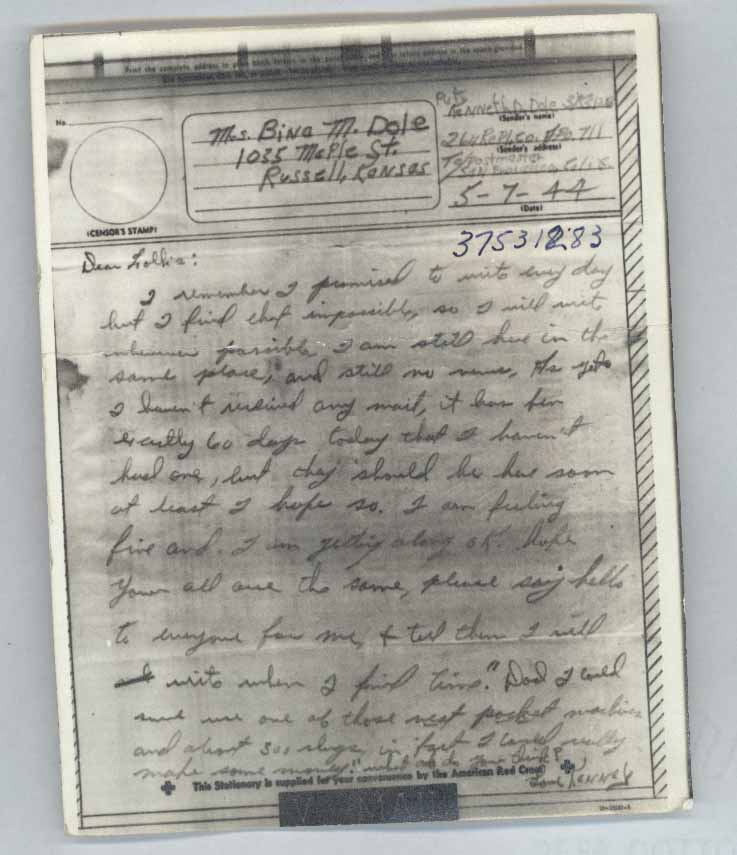 Print the complete address in plain block letters in the panel below, and your return address in the space provided
No.
(CENSOR'S STAMP)
Mrs. Bina M. Dole
1035 Maple St.
Russell, Kansas
Pvt. Kenneth D. Dole
(Sender's name)
(Sender's address)
℅ Postmaster
San Francisco, Calif.
5-7-44
(Date)
37531283
Dear Folks:
I remember I promised to write every day
but I find that impossible, so I will write
whenever possible. I am still here in the
same place, and still no news. As yet
I haven't received any mail, it has been
exactly 60 days today that I haven't
had one, but they should be here soon
at least I hope so. I am feeling
fine and I am getting along OK. Hope
you all are the same, please say hello
to everyone for me, & tell them I will
write when I find time." Dad I could
sure use one of those vest pocket machines
and about 300 slugs, in fact I could really
make some money." what do you think?
Love Kenney
This Stationery is supplied for your convenience by the American Red Cross